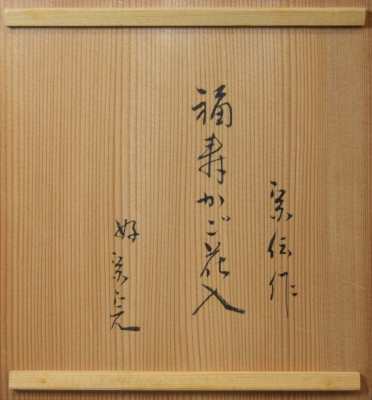 宗伝作
福寿かご花入
好 宗完